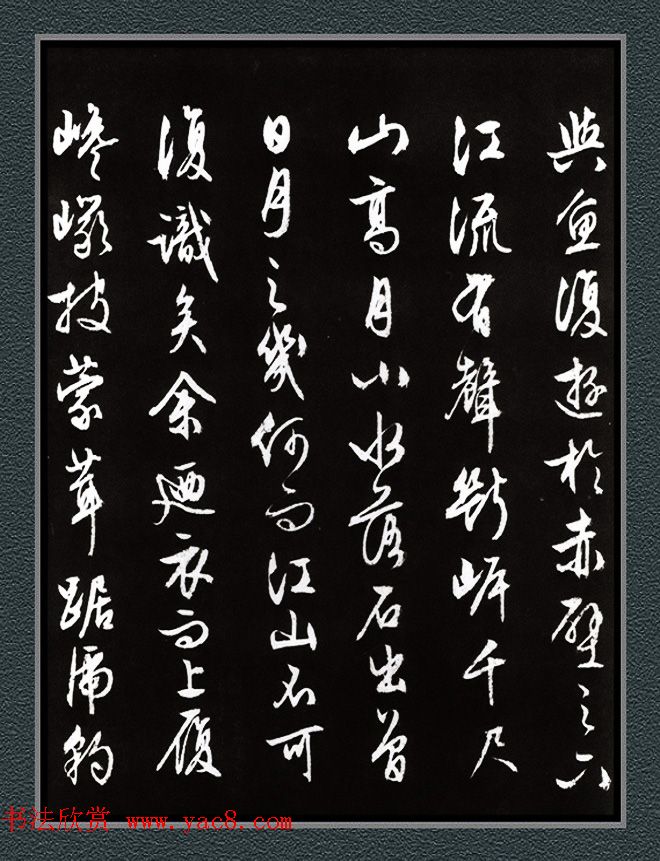 與魚復遊於赤壁之下
江流有聲斷岸千尺
山高月小水落石出曾
日月之幾何而江山不可
復識矣余廼衣而上履
巉巖披蒙茸踞虎豹
书法欣赏 www.yac8.com